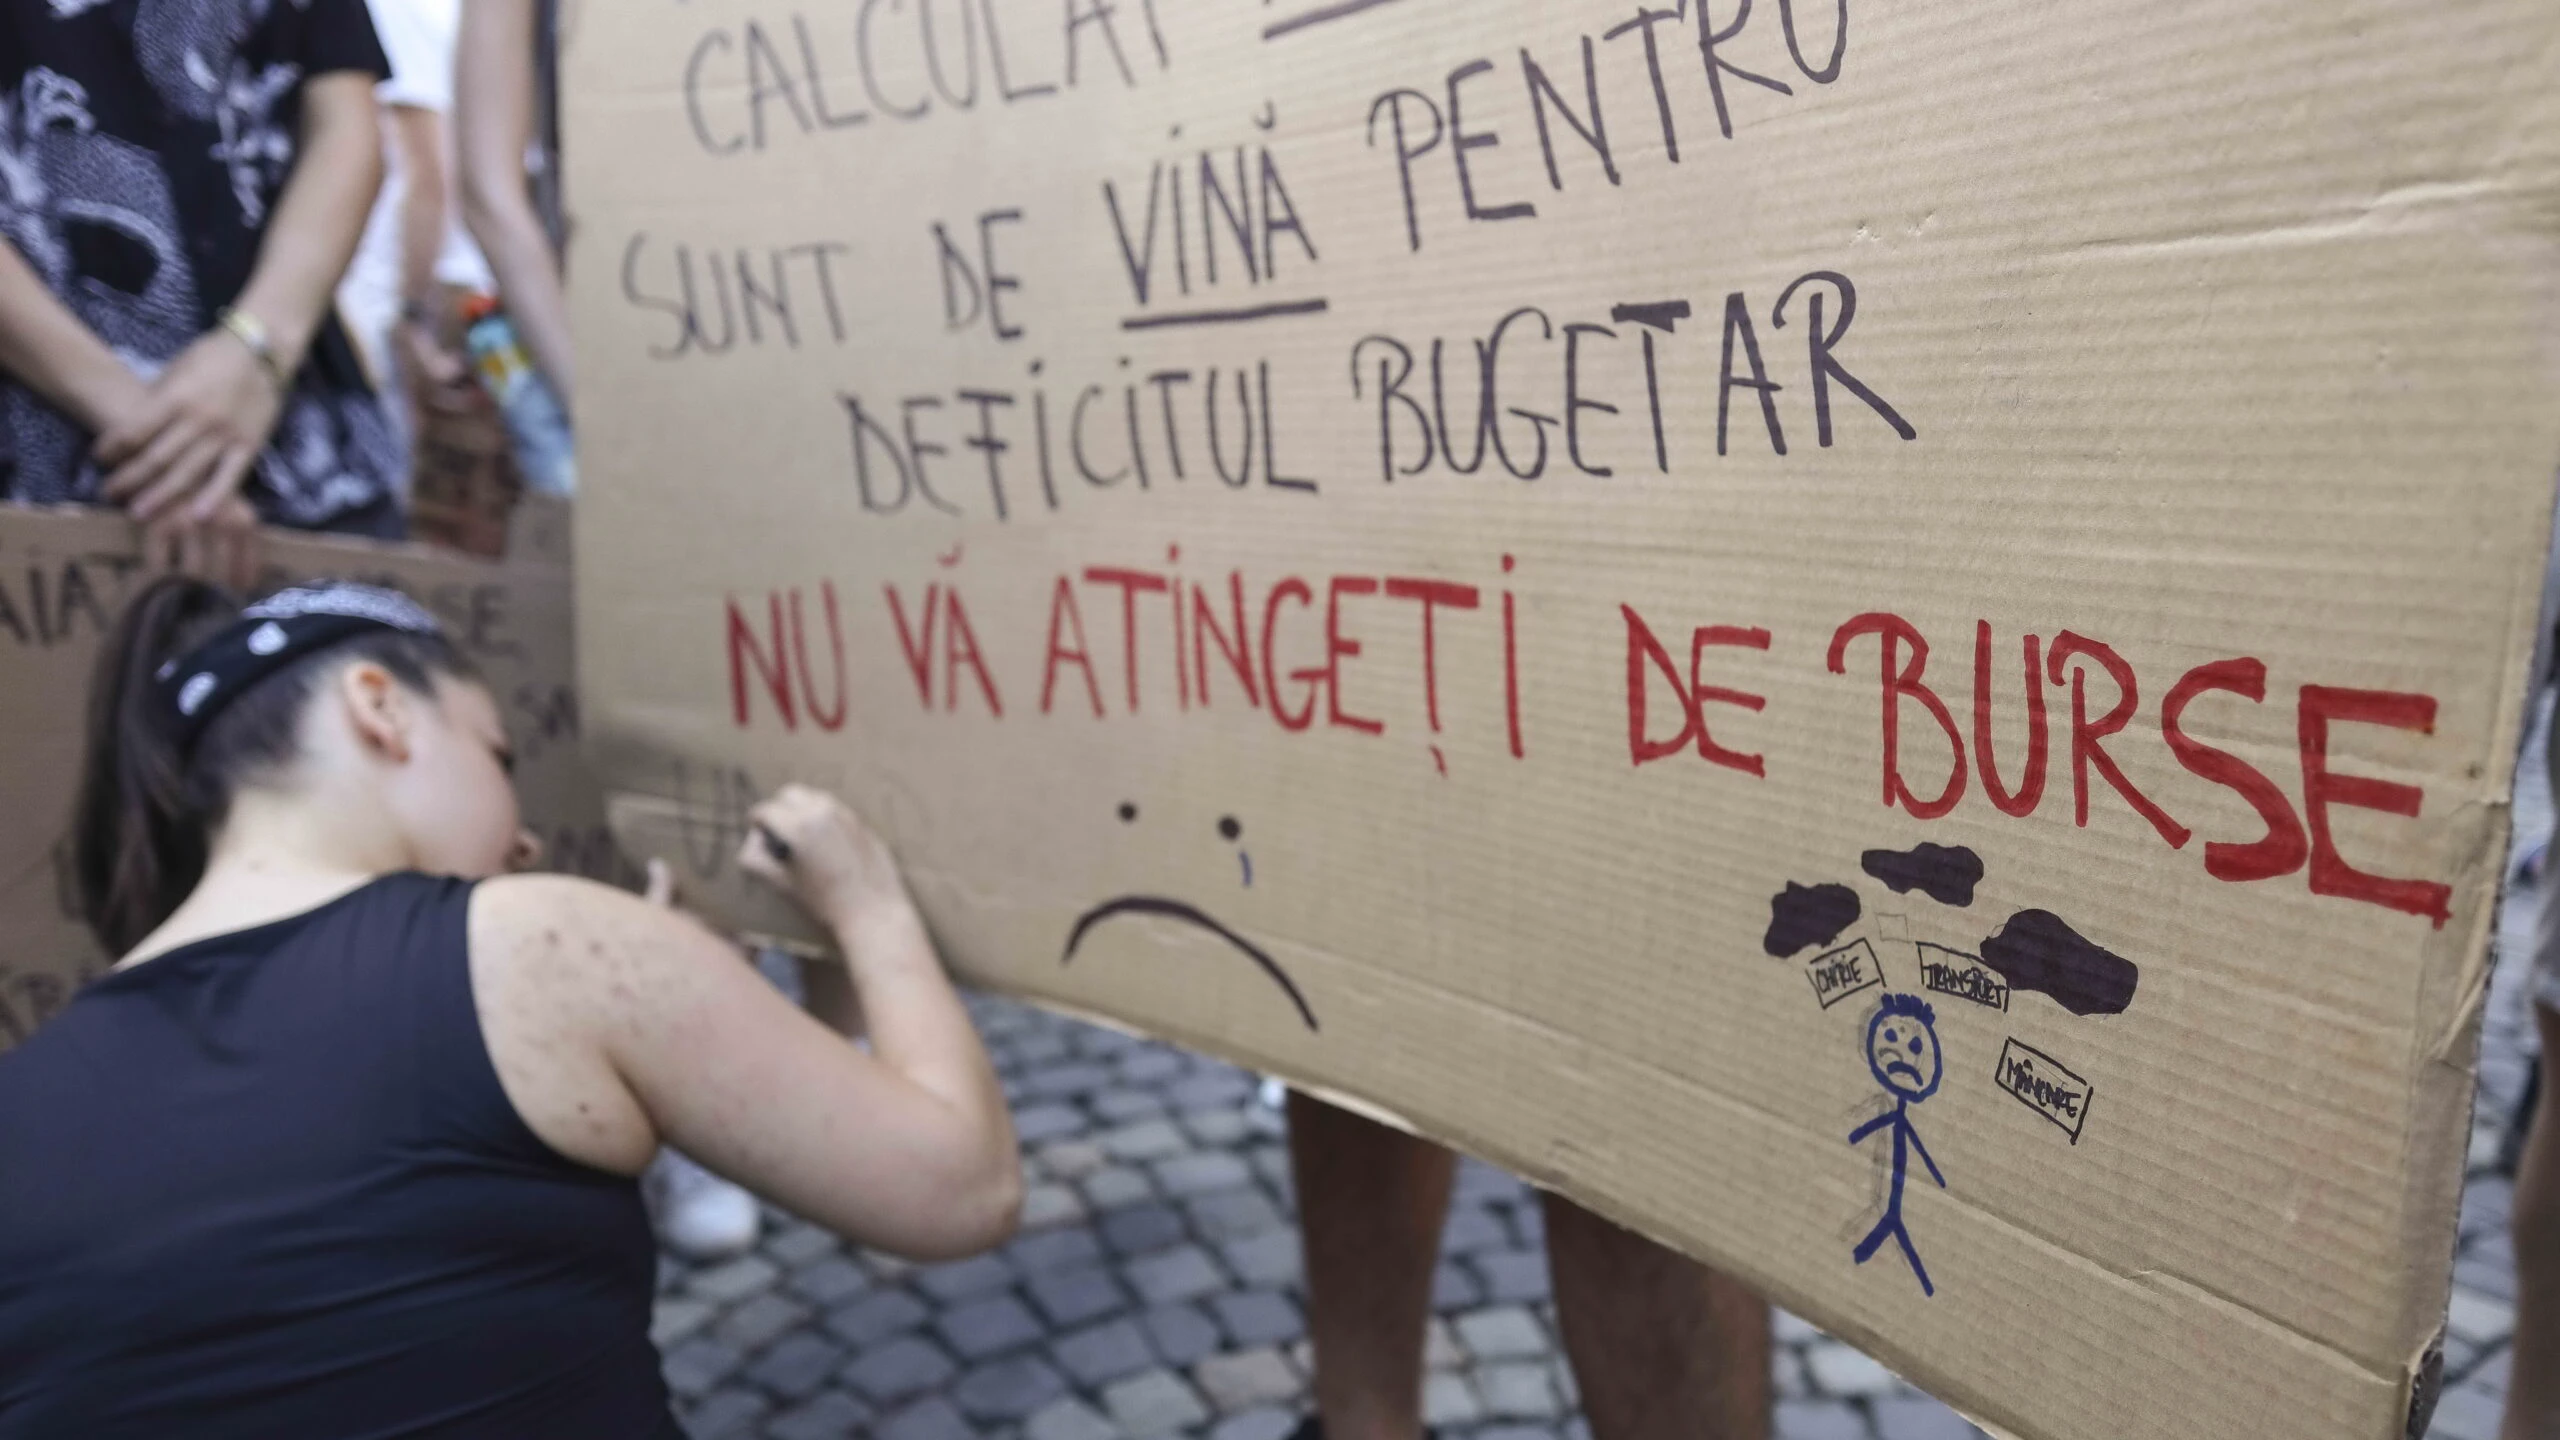 CALCULAT
SUNT DE VINĂ PENTRU
DEFICITUL BUGETAR
NU VĂ ATINGEȚI DE BURSE
CHIRIE
TRANSPORT
MÂNCARE